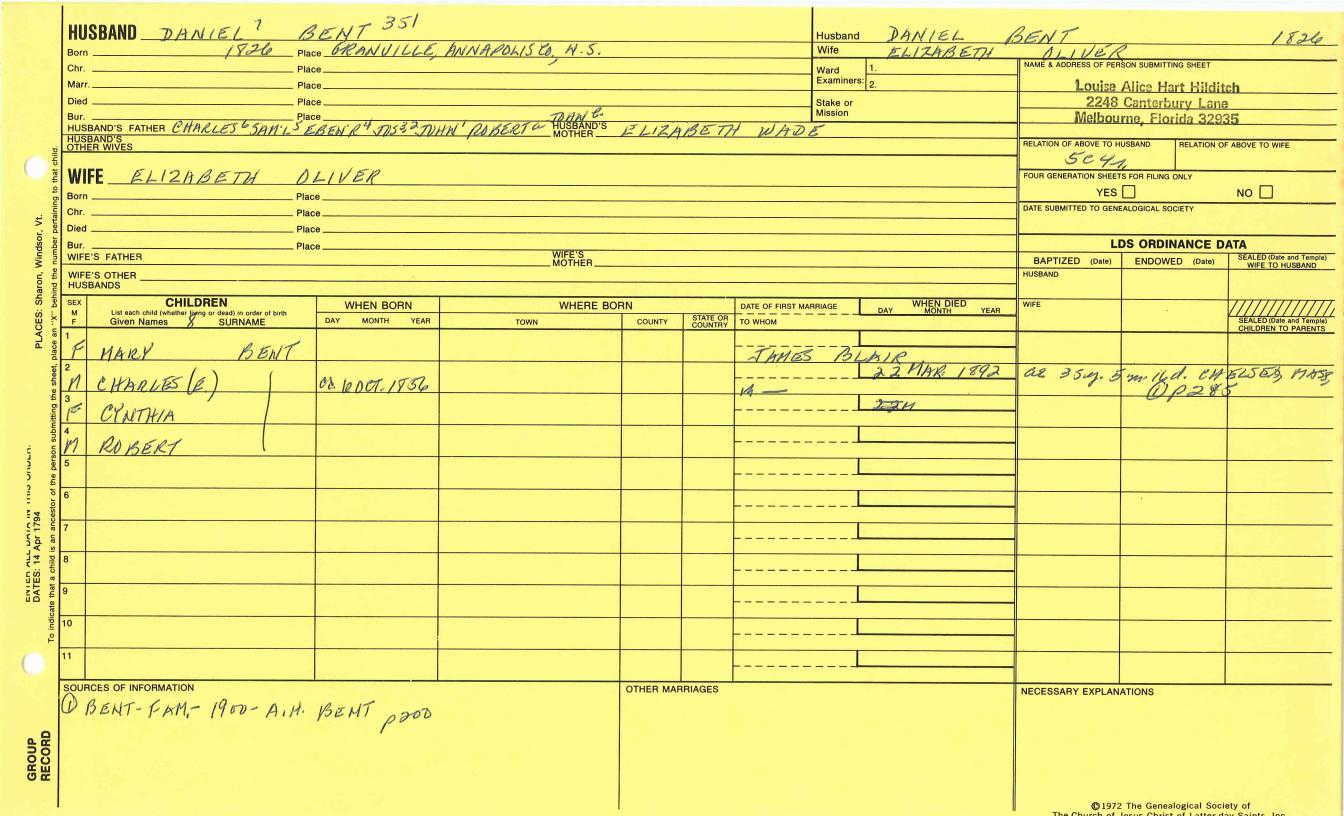 HUSBAND DANIEL 7 BENT 351
Born 1826 Place GRANVILLE, ANNAPOLIS Co, N.S.
Chr. Place
Marr. Place
Died Place
Bur. Place
HUSBAND'S FATHER CHARLES 6 SAM'L 5 EBEN'R 4 JOS 3 2 JOHN 1 ROBERT JOHN HUSBAND'S MOTHER ELIZABETH WADE
HUSBAND'S OTHER WIVES
Husband DANIEL BENT 1826
Wife ELIZABETH OLIVER
Ward Examiners: 1.
2.
Stake or Mission
NAME & ADDRESS OF PERSON SUBMITTING SHEET
Louise Alice Hart Hilditch
2248 Canterbury Lane
Melbourne, Florida 32935
RELATION OF ABOVE TO HUSBAND RELATION OF ABOVE TO WIFE
5C4r
FOUR GENERATION SHEETS FOR FILING ONLY
YES NO
DATE SUBMITTED TO GENEALOGICAL SOCIETY
WIFE ELIZABETH OLIVER
Born Place
Chr. Place
Died Place
Bur. Place
WIFE'S FATHER WIFE'S MOTHER
WIFE'S OTHER HUSBANDS
LDS ORDINANCE DATA
BAPTIZED (Date) ENDOWED (Date) SEALED (Date and Temple) WIFE TO HUSBAND
HUSBAND
WIFE
SEALED (Date and Temple) CHILDREN TO PARENTS
SEX M F
CHILDREN
List each child (whether living or dead) in order of birth
Given Names SURNAME
WHEN BORN
DAY MONTH YEAR
WHERE BORN
TOWN COUNTY STATE OR COUNTRY
DATE OF FIRST MARRIAGE
TO WHOM
WHEN DIED
DAY MONTH YEAR
1 F MARY BENT JAMES BLAIR
2 M CHARLES (E) ca 6 OCT. 1856 22 MAR. 1892 ae 35y. 5m. 16d. CHELSEA, MASS,
① p285
3 F CYNTHIA
4 M ROBERT
5
6
7
8
9
10
11
SOURCES OF INFORMATION
① BENT-FAM.- 1900- A.H. BENT p200
OTHER MARRIAGES
NECESSARY EXPLANATIONS
©1972 The Genealogical Society of
The Church of Jesus Christ of Latter-day Saints, Inc.
PLACES: Sharon, Windsor, Vt.
To indicate that a child is an ancestor of the person submitting the sheet, place an "X" behind the number pertaining to that child.
ENTER ALL DATA IN THIS ORDER:
DATES: 14 Apr 1794
GROUP RECORD